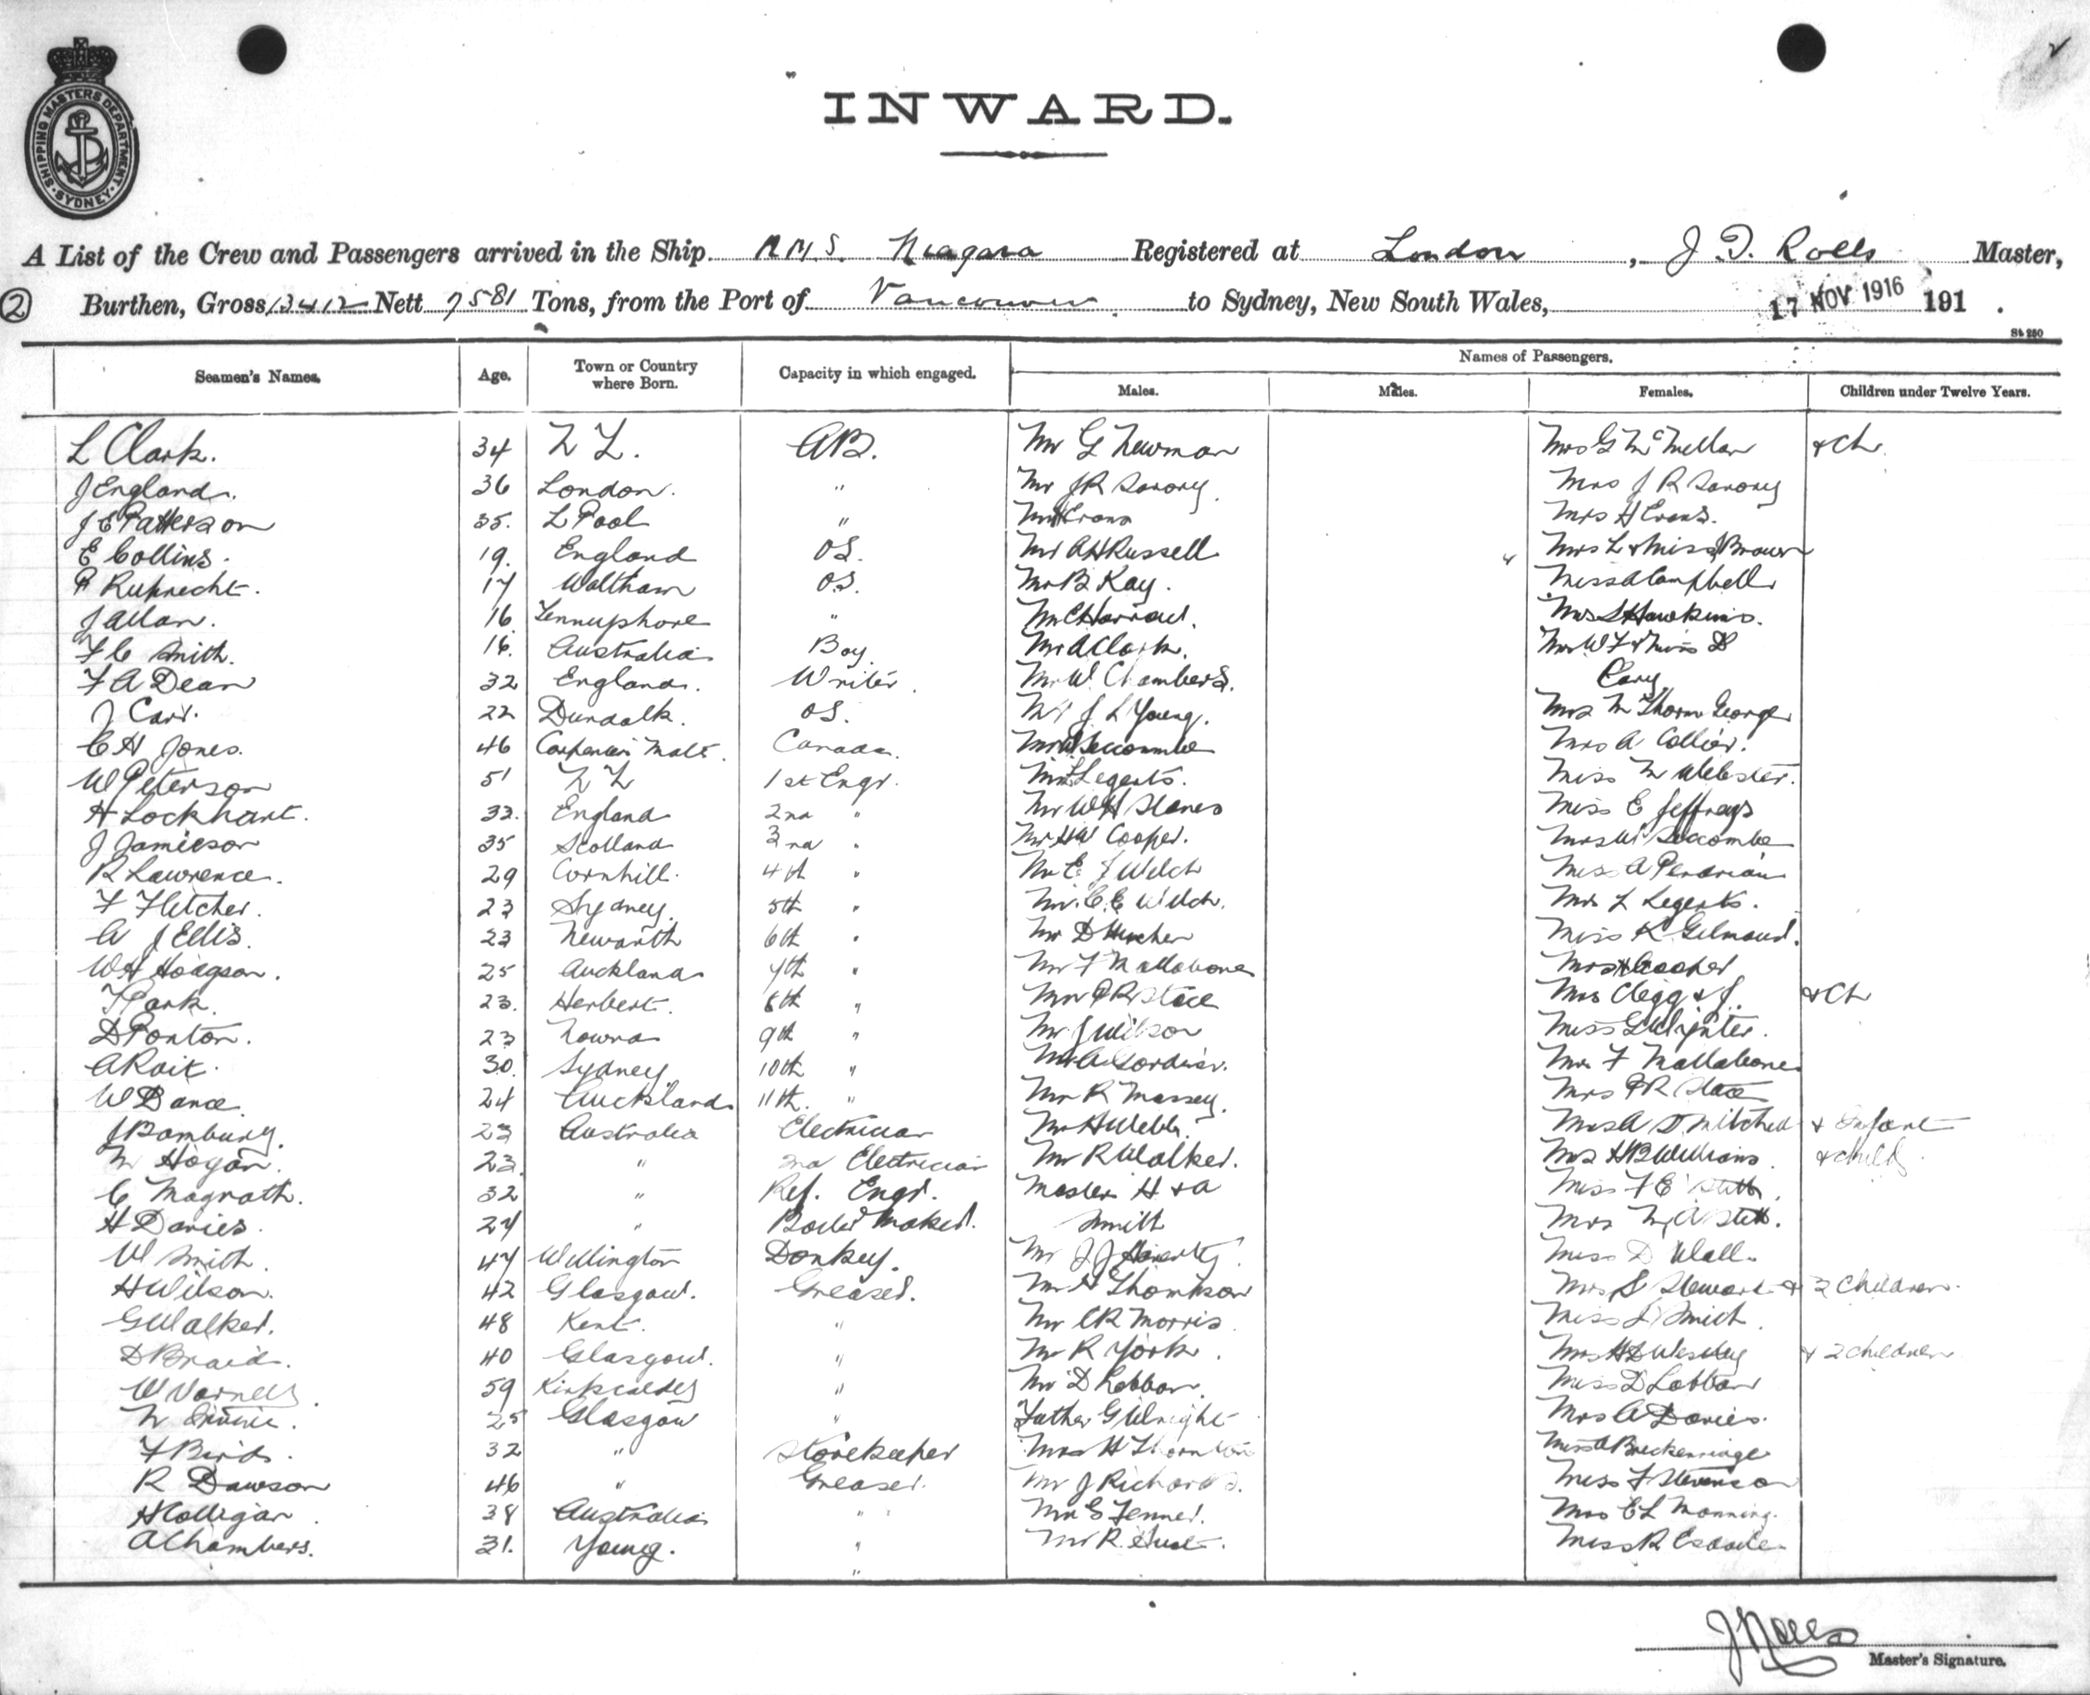 SHIPPING MASTERS DEPARTMENT. SYDNEY
INWARD.
A List of the Crew and Passengers arrived in the Ship R.M.S. Niagara Registered at London, J. T. Rolls Master,
2 Burthen, Gross 13412 Nett 7581 Tons, from the Port of Vancouver to Sydney, New South Wales, 17 NOV 1916 191 .
St 250
Seamen's Names. Age. Town or Country where Born. Capacity in which engaged. Names of Passengers.
Males. Males. Females. Children under Twelve Years.
L Clark. 34 N Z. AB. Mr G Newman Mrs G McMellan & Ch.
J England. 36 London. " Mr JR Savory Mrs J R Savory
J E Patterson 35. L Pool " Mr H Evans Mrs H Evans.
E Collins. 19. England OS. Mr AH Russell Mrs L & Miss J Brown
R Ruprecht. 17 Waltham O.S. Mr B Kay. Miss A Campbell
J Allan. 16 " Mr C Harrow. Mrs S Hawkins.
F C Smith. 16. Australia Boy Mr A Clark. Mrs W F & Miss D
F A Dean 32 England. Writer. Mr W. Chambers. Cary
J Carr. 22 Dundalk. OS. Mr J L Young. Mrs M Thorn George
C H Jones. 46 Carpenters Mate. Canada. Mr W Seccombe Mrs A Collier.
W Peterson 51 N Z 1st Engr. Mr L Legerts. Miss M Webster.
H Lockhart. 33. England 2nd " Mr WH Slanes Miss E Jeffreys
J Jamieson 35 Scotland 3rd " Mr HW Cooper. Mrs W Seccombe
R Lawrence. 29 Cornhill. 4th " Mr E J Welch Miss A
F Fletcher. 23 Sydney. 5th " Mr C. E Welch. Mrs L Legerts.
A J Ellis. 23 6th " Mr D Miss K
W H Hodgson. 25 Auckland 7th " Mr F Mallabone Mrs H Cooper
T Park. 23. Herbert. 8th " Mr P R Stace Mrs Clegg & J. & Ch
D Ponton. 23 Nowra 9th " Mr J Wilson Miss G Wynter.
A Rait. 30. Sydney 10th " Mr A Gordier. Mrs F Mallabone
W Dance. 24 Auckland 11th. " Mr R Massey. Mrs P R Stace
J Bambury. 23 Australia Electrician Mr H Webb. Mrs A D Mitchell & Infant
M Hogan. 23. " 2nd Electrician Mr R Walker. Mrs H B Williams. & child
C Magrath. 32 " Ref. Engr. Masters H & A Miss F E Stitt.
H Davies. 27 " Boiler Maker. Smith Mrs M A Stitt.
W Smith. 47 Wellington Donkey. Mr J J Miss D Wall
H Wilson. 42 Glasgow. Greaser. Mr H Thompson Mrs S Stewart & 2 Children.
G Walker. 48 Kent. " Mr C R Morris. Miss L Smith.
D Braid. 40 Glasgow. " Mr R York. Mrs H D Wesley & 2 children
W 59 Kirkcaldy " Mr D Lobban. Miss D Lobban
N Irvine. 25 Glasgow " Father G Wright Mrs A Davies.
F Bird. 32 " Storekeeper Mrs H Thornton Miss A Breckenridge
R Dawson 46 " Greaser. Mr J Richards. Miss F Stevenson
H Colligan. 38 Australia " Mr G Fenner. Mrs E L Manning.
A Chambers. 31. Young. " Mr R. Miss R
"
J Rolls
Master's Signature.